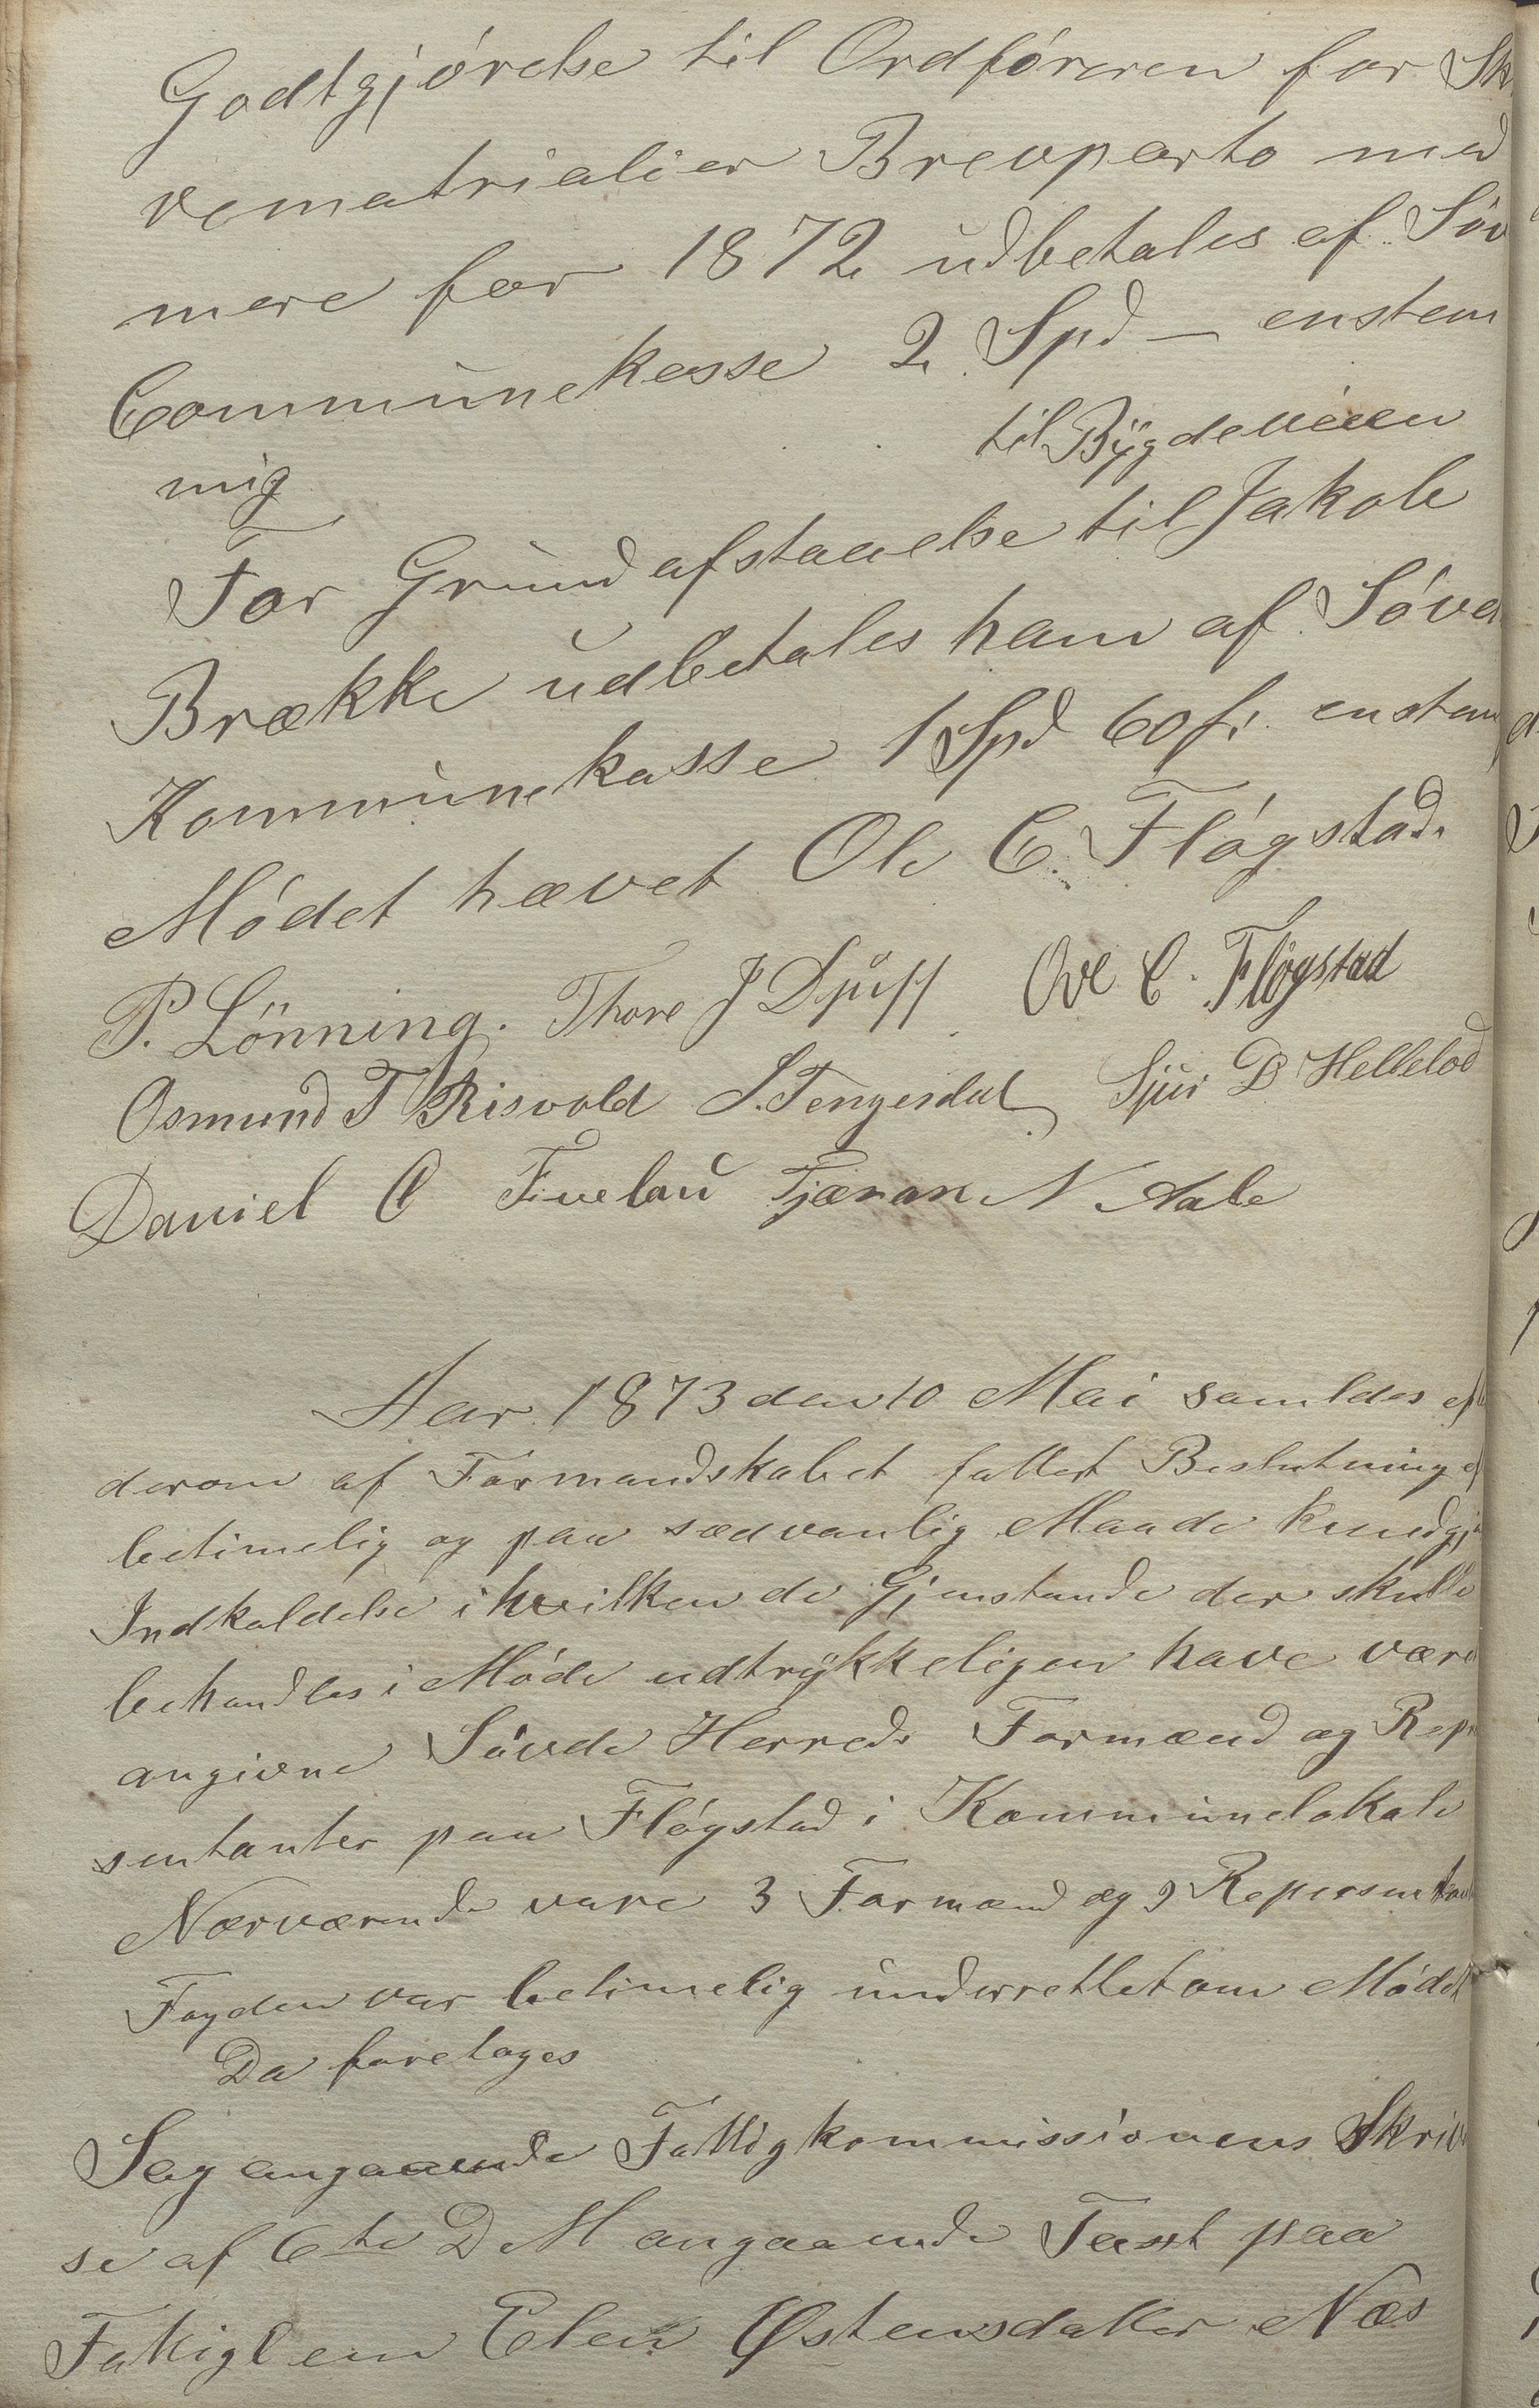 Godtgjörelse til Ordföreren for Sk
vematrialier Brevporto med
mere for 1872 udbetales af Söv
Communekasse 2 Spd - enstem
mig
til Bygdeveien
For Grundafstaaelse til Jakob
Brække udbetales ham af Sövd
Kommunekasse 1 Spd 60 fi enstem
Mödet hævet Ole C. Flögstad
P. Lönning. Thore J Djuff Ove C. Fløgstad
Osmund T Risvold S. Tengesdal Sjur D Hebbelod
Daniel O Fiveland Tjæran N Aabe
Aar 1873 den 10 Mai samledes eft
derom af Formandskabet fattet Beslutning ef
betimelig og paa sædvanlig Maade kundgj
Indkaldelse i hvilken de Gjenstande der skulle
behandles i Möde udtrykkeligen have være
angivne Sövde Herreds Formænd og Repr
sentanter paa Flögstad i Kommunelokale
Nærværende vare 3 Formænd og 9 Represent
Fogden var betimelig underrettet om Mödet
Da foretoges
Sag angaaende Fattigkommissionens Skriv
se af 6te D M angaaende Taxt paa
Fattiglem Elen Østensdatter Næs